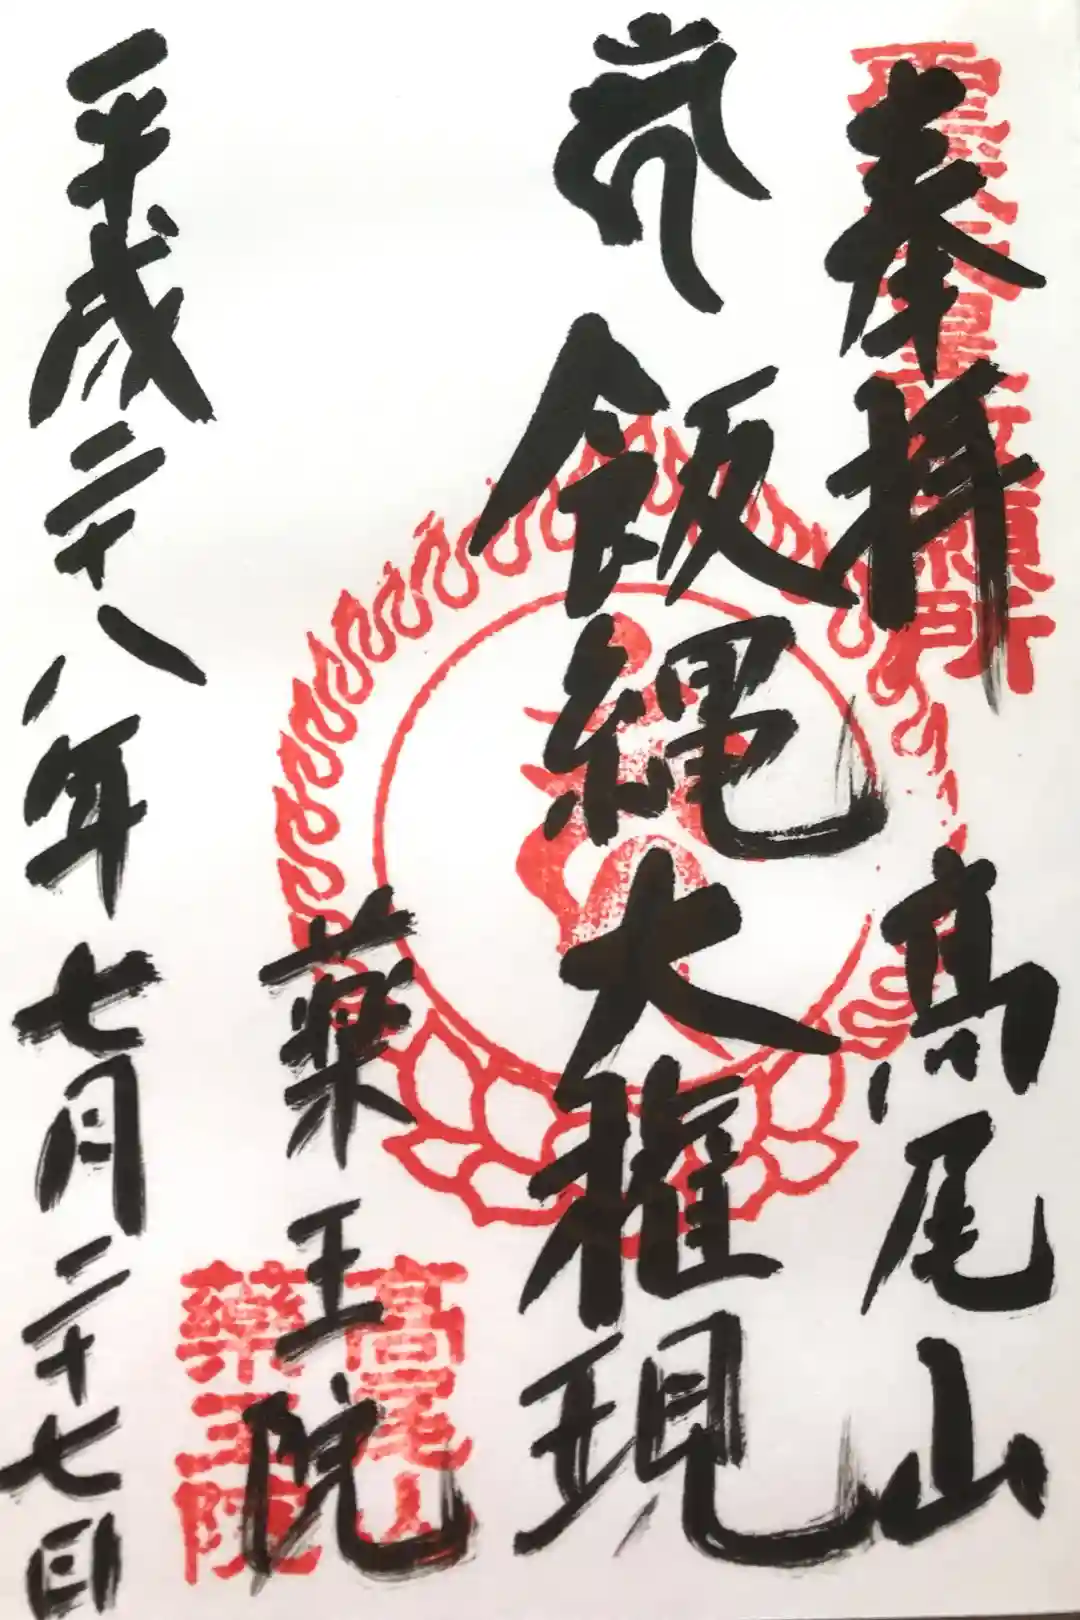 奉拝 高尾山
飯縄大権現
薬王院
平成二十八年七月二十七日
高尾山
薬王院